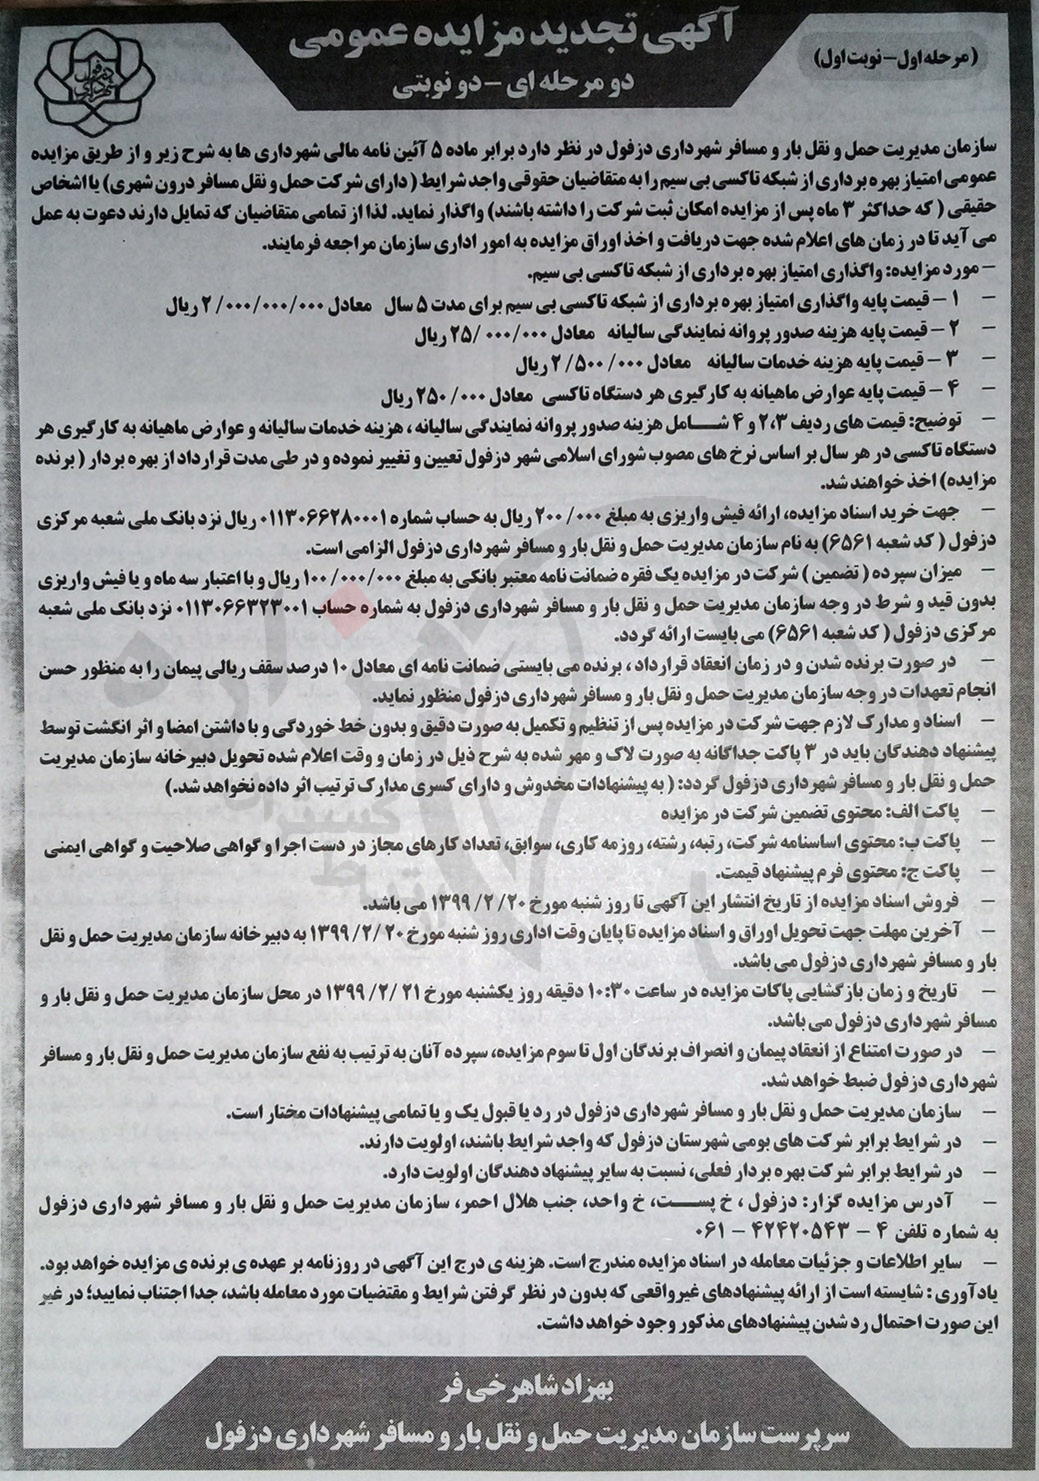 آگهی تجدید مزایده عمومی
(مرحله اول - نوبت اول)
دو مرحله ای - دو نوبتی
سازمان مدیریت حمل و نقل بار و مسافر شهرداری دزفول در نظر دارد برابر ماده ۵ آئین نامه مالی شهرداری ها به شرح زیر و از طریق مزایده
عمومی امتیاز بهره برداری از شبکه تاکسی بی سیم را به متقاضیان حقوقی واجد شرایط ( دارای شرکت حمل و نقل مسافر درون شهری) یا اشخاص
حقیقی ( که حداکثر ۳ ماه پس از مزایده امکان ثبت شرکت را داشته باشند) واگذار نماید. لذا از تمامی متقاضیان که تمایل دارند دعوت به عمل
می آید تا در زمان های اعلام شده جهت دریافت و اخذ اوراق مزایده به امور اداری سازمان مراجعه فرمایند.
- مورد مزایده: واگذاری امتیاز بهره برداری از شبکه تاکسی بی سیم.
- ۱ - قیمت پایه واگذاری امتیاز بهره برداری از شبکه تاکسی بی سیم برای مدت ۵ سال معادل ۲/۰۰۰/۰۰۰/۰۰۰ ریال
- ۲ - قیمت پایه هزینه صدور پروانه نمایندگی سالیانه معادل ۲۵/۰۰۰/۰۰۰ ریال
- ۳ - قیمت پایه هزینه خدمات سالیانه معادل ۲/۵۰۰/۰۰۰ ریال
- ۴ - قیمت پایه عوارض ماهیانه به کارگیری هر دستگاه تاکسی معادل ۲۵۰/۰۰۰ ریال
- توضیح: قیمت های ردیف ۲،۳ و ۴ شامل هزینه صدور پروانه نمایندگی سالیانه ، هزینه خدمات سالیانه و عوارض ماهیانه به کارگیری هر
دستگاه تاکسی در هر سال بر اساس نرخ های مصوب شورای اسلامی شهر دزفول تعیین و تغییر نموده و در طی مدت قرارداد از بهره بردار ( برنده
مزایده) اخذ خواهند شد.
- جهت خرید اسناد مزایده، ارائه فیش واریزی به مبلغ ۲۰۰/۰۰۰ ریال به حساب شماره ۰۱۱۳۰۶۶۲۸۰۰۰۱ ریال نزد بانک ملی شعبه مرکزی
دزفول ( کد شعبه ۶۵۶۱) به نام سازمان مدیریت حمل و نقل بار و مسافر شهرداری دزفول الزامی است.
- میزان سپرده ( تضمین ) شرکت در مزایده یک فقره ضمانت نامه معتبر بانکی به مبلغ ۱۰۰/۰۰۰/۰۰۰ ریال و با اعتبار سه ماه و یا فیش واریزی
بدون قید و شرط در وجه سازمان مدیریت حمل و نقل بار و مسافر شهرداری دزفول به شماره حساب ۰۱۱۳۰۶۶۳۲۳۰۰۱ نزد بانک ملی شعبه
مرکزی دزفول ( کد شعبه ۶۵۶۱) می بایست ارائه گردد.
- در صورت برنده شدن و در زمان انعقاد قرارداد ، برنده می بایستی ضمانت نامه ای معادل ۱۰ درصد سقف ریالی پیمان را به منظور حسن
انجام تعهدات در وجه سازمان مدیریت حمل و نقل بار و مسافر شهرداری دزفول منظور نماید.
- اسناد و مدارک لازم جهت شرکت در مزایده پس از تنظیم و تکمیل به صورت دقیق و بدون خط خوردگی و با داشتن امضا و اثر انگشت توسط
پیشنهاد دهندگان باید در ۳ پاکت جداگانه به صورت لاک و مهر شده به شرح ذیل در زمان و وقت اعلام شده تحویل دبیرخانه سازمان مدیریت
حمل و نقل بار و مسافر شهرداری دزفول گردد: ( به پیشنهادات مخدوش و دارای کسری مدارک ترتیب اثر داده نخواهد شد.)
- پاکت الف: محتوی تضمین شرکت در مزایده
- پاکت ب: محتوی اساسنامه شرکت، رتبه، رشته، روزمه کاری، سوابق، تعداد کارهای مجاز در دست اجرا و گواهی صلاحیت و گواهی ایمنی
- پاکت ج: محتوی فرم پیشنهاد قیمت.
- فروش اسناد مزایده از تاریخ انتشار این آگهی تا روز شنبه مورخ ۱۳۹۹/۲/۲۰ می باشد.
- آخرین مهلت جهت تحویل اوراق و اسناد مزایده تا پایان وقت اداری روز شنبه مورخ ۱۳۹۹/۲/۲۰ به دبیرخانه سازمان مدیریت حمل و نقل
بار و مسافر شهرداری دزفول می باشد.
- تاریخ و زمان بازگشایی پاکات مزایده در ساعت ۱۰:۳۰ دقیقه روز یکشنبه مورخ ۱۳۹۹/۲/۲۱ در محل سازمان مدیریت حمل و نقل بار و
مسافر شهرداری دزفول می باشد.
- در صورت امتناع از انعقاد پیمان و انصراف برندگان اول تا سوم مزایده، سپرده آنان به ترتیب به نفع سازمان مدیریت حمل و نقل بار و مسافر
شهرداری دزفول ضبط خواهد شد.
- سازمان مدیریت حمل و نقل بار و مسافر شهرداری دزفول در رد یا قبول یک و یا تمامی پیشنهادات مختار است.
- در شرایط برابر شرکت های بومی شهرستان دزفول که واجد شرایط باشند، اولویت دارند.
- در شرایط برابر شرکت بهره بردار فعلی، نسبت به سایر پیشنهاد دهندگان اولویت دارد.
- آدرس مزایده گزار: دزفول ، خ پست، خ واحد، جنب هلال احمر، سازمان مدیریت حمل و نقل بار و مسافر شهرداری دزفول
به شماره تلفن ۴ - ۴۲۴۲۰۵۴۳ - ۰۶۱
- سایر اطلاعات و جزئیات معامله در اسناد مزایده مندرج است. هزینه ی درج این آگهی در روزنامه بر عهده ی برنده ی مزایده خواهد بود.
یادآوری : شایسته است از ارائه پیشنهادهای غیرواقعی که بدون در نظر گرفتن شرایط و مقتضیات مورد معامله باشد، جدا اجتناب نمایید؛ در غیر
این صورت احتمال رد شدن پیشنهادهای مذکور وجود خواهد داشت.
بهزاد شاهرخی فر
سرپرست سازمان مدیریت حمل و نقل بار و مسافر شهرداری دزفول